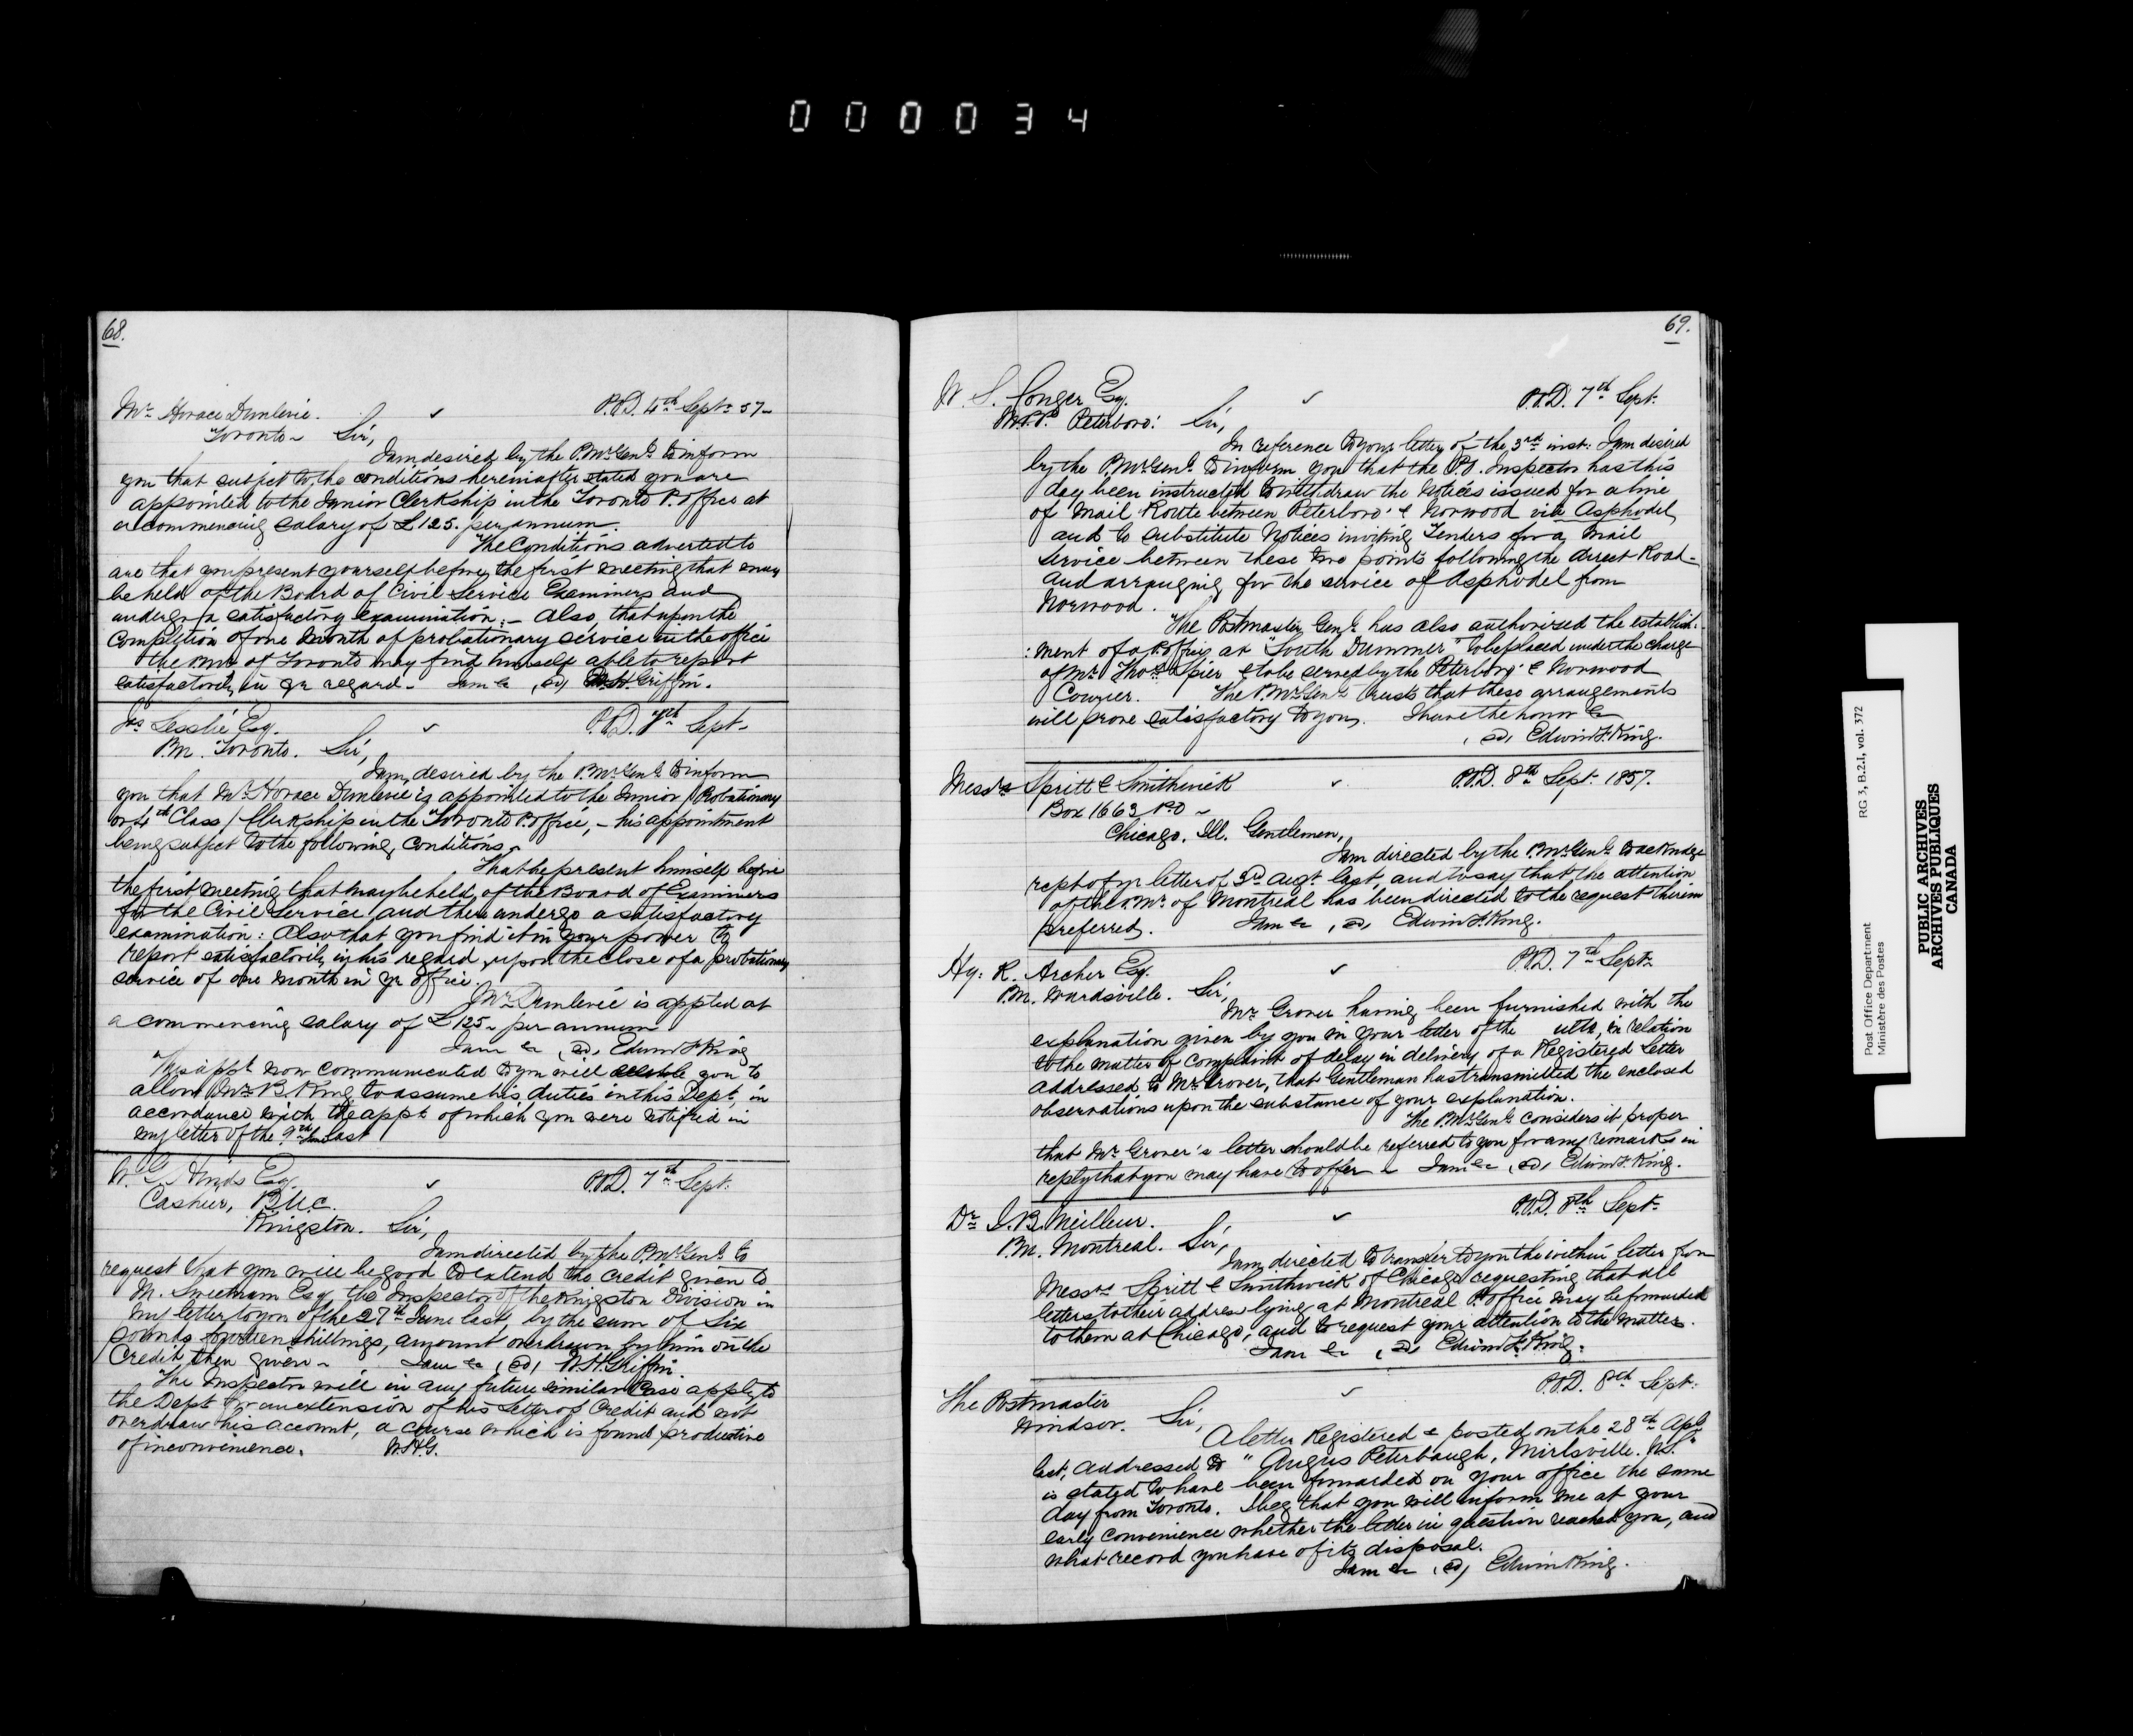 0 0 0 0 3 4
68.
Mr Horace Dunlevie. P.O.D. 4th Septr 57
Toronto Sir,
I am desired by the P.Mr Genl to inform
you that subject to the conditions hereinafter stated you are
appointed to the Junior Clerkship in the Toronto P. Office at
a commencing salary of £125. per annum.
The Conditions adverted to
are that you present yourself before the first meeting that may
be held of the Board of Civil Service Examiners and
undergo a satisfactory examination; - Also, that upon the
completion of one month of probationary service in the office
the PMr of Toronto may find himself able to report
satisfactorily in yr regard - I am &c (sd) W.H. Griffin.
Js Lesslie Esq. P.O.D. 7th Sept.
P.M. Toronto. Sir,
I am desired by the P.Mr Genl to inform
you that Mr Horace Dunlevie is appointed to the Junior (Probationary
or 4th Class) Clerkship in the Toronto P. Office, - his appointment
being subject to the following conditions -
That he present himself before
the first meeting that may be held of the Board of Examiners
for the Civil Service and there undergo a satisfactory
examination: Also that you find it in your power to
report satisfactorily in his regard, upon the close of a probationary
service of one month in yr office.
Mr Dunlevie is appted at
a commencing salary of £125 - per annum
I am &c (sd) Edwin F. King
This appt now communicated to you will enable you to
allow Mr B. King to assume his duties in this Dept, in
accordance with the appt of which you were notified in
my letter of the 9th last
W. G. Hinds Esq. P.O.D. 7th Sept.
Cashier, B.U.C.
Kingston. Sir,
I am directed by the P.Mr Genl to
request that you will be good to extend the credit given to
M. Sweetnam Esq the Inspector of the Kingston Division in
my letter to you of the 27th June last, by the sum of Six
pounds fourteen shillings, amount overdrawn by him on the
Credit then given - I am &c (sd) W.H. Griffin.
The Inspector will in any future similar Case apply to
the Dept for an extension of his Letter of Credit and not
overdraw his account, a course which is found productive
of inconvenience. W.H.G.
69.
W. S. Conger Esq. P.O.D. 7th Sept.
M.P.P. Peterboro: Sir,
In reference to your letter of the 3rd inst. I am desired
by the P.Mr Genl to inform you that the P.O. Inspector has this
day been instructed to withdraw the Notices issued for a line
of Mail Route between Peterboro' & Norwood via Asphodel,
and to substitute Notices inviting Tenders for a Mail
Service between these two points following the direct Road -
and arranging for the service of Asphodel from
Norwood.
The Postmaster Genl has also authorized the establish-
:ment of a P. Office at "South Dummer" to be placed under the charge
of Mr Thos Spier & to be served by the Peterboro' & Norwood
Courier. The P.Mr Genl trusts that these arrangements
will prove satisfactory to you. I have the honor &c
(sd) Edwin F. King.
Messrs Spritt & Smithwick P.O.D. 8th Sept. 1857.
Box 1663 P.O -
Chicago. Ill. Gentlemen,
I am directed by the P.Mr Genl to acknldge
rept of yr letter of 3rd Augt last and to say that the attention
of the PMr of Montreal has been directed to the request therein
preferred. I am &c (sd) Edwin F. King.
Hy: R. Archer Esq. P.O.D. 7th Sept.
P.M. Wardsville. Sir,
Mr Grover having been furnished with the
explanation given by you in your letter of the ulto, in relation
to the matter of complaint of delay in delivery of a Registered Letter
addressed to Mr Grover, that Gentleman has transmitted the enclosed
observations upon the substance of your explanation.
The P.Mr Genl considers it proper
that Mr Grover's letter should be referred to you for any remarks in
reply that you may have to offer - I am &c (sd) Edwin F. King.
Dr J.B. Meilleur. P.O.D. 8th Sept.
P.M. Montreal. Sir,
I am directed to transfer to you the within letter from
Messrs Spritt & Smithwick of Chicago requesting that all
letters to their address lying at Montreal P. Office may be forwarded
to them at Chicago, and to request your attention to the matter.
I am &c (sd) Edwin F. King.
The Postmaster P.O.D. 8th Sept.
Windsor. Sir,
A letter Registered & posted on the 28th Apl
last, addressed to "Angus Peterbaugh,
is stated to have been forwarded on your office the same
day from Toronto. I beg that you will inform me at your
early convenience whether the letter in question reached you, and
what record you have of its disposal.
I am &c (sd) Edwin King.
Post Office Department RG 3, B.2.I, vol. 372
Ministère des Postes
PUBLIC ARCHIVES
ARCHIVES PUBLIQUES
CANADA